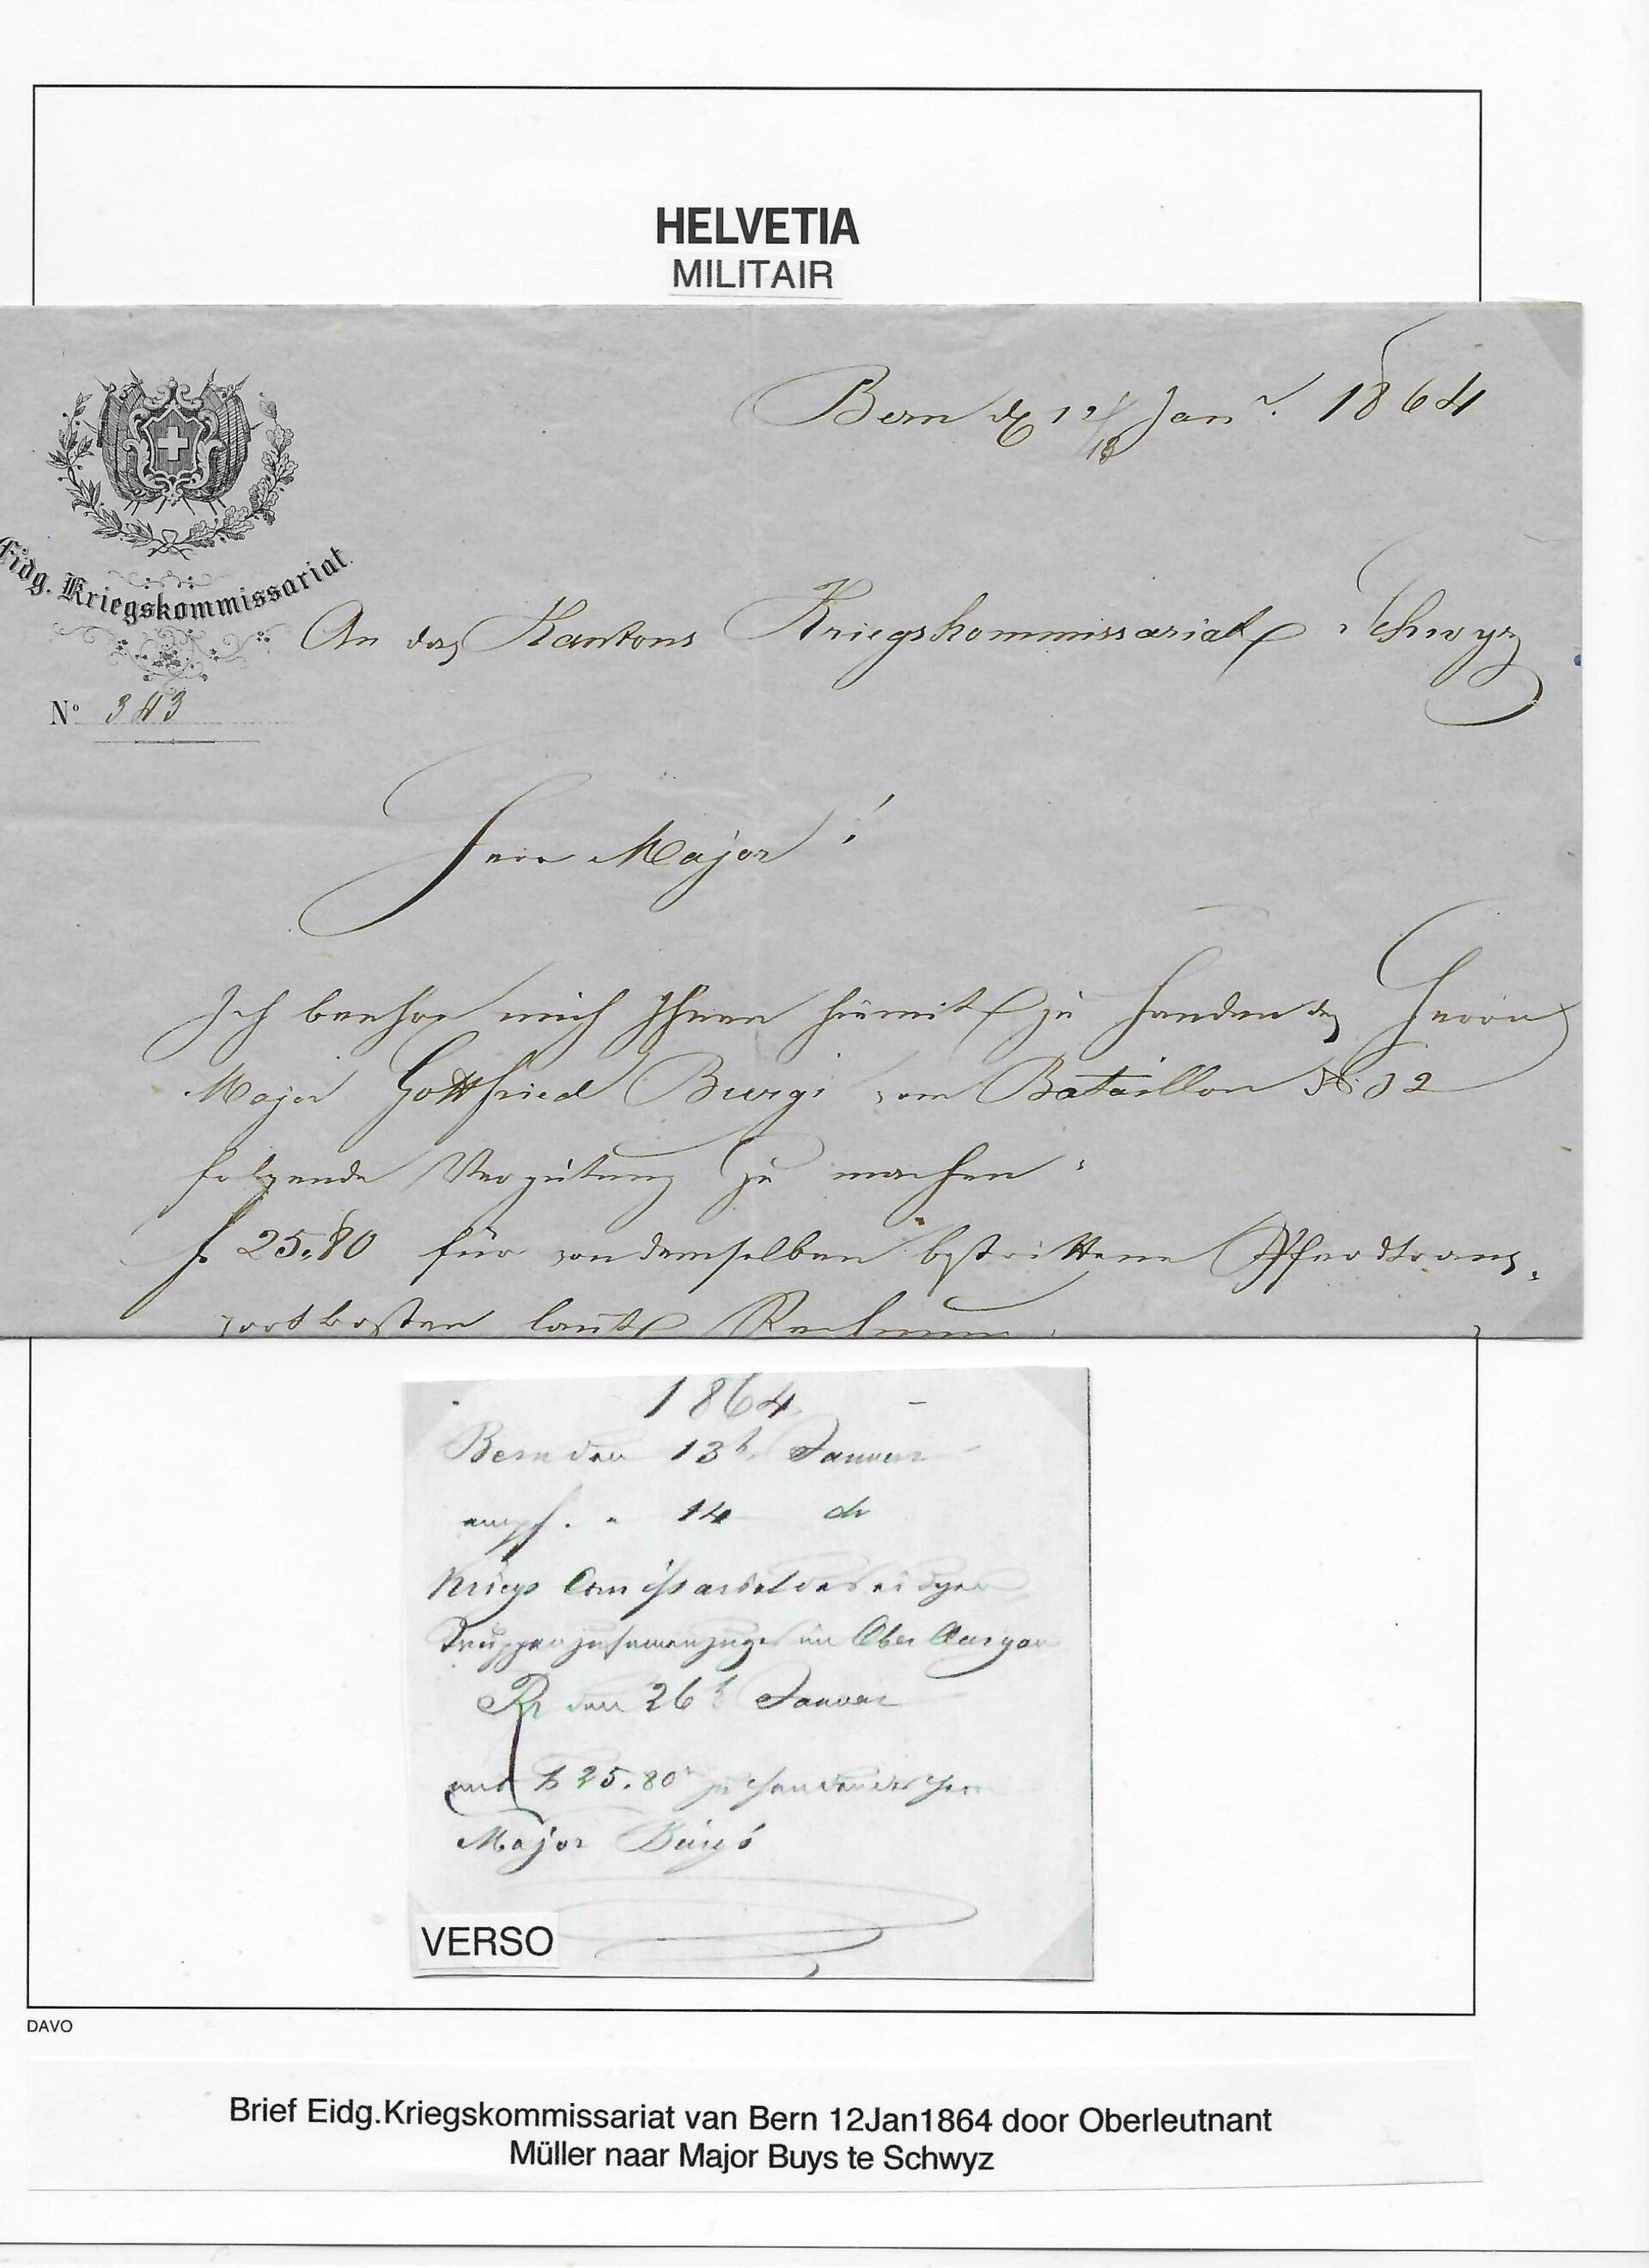 HELVETIA
MILITAIR
Bern d. 12/13 Janr. 1864
Eidg. Kriegskommissariat.
An das Kantons Kriegskommissariat Schwyz
No 343
Herr Major!
Ich beehre mich Ihnen hiemit zu Handen des Herrn
Major Gottfried Burgi vom Bataillon No 32
folgende Vergütung zu machen:
fr 25.80 für von demselben bestrittene Pferdtrans-
portkosten laut Rechnung.
1864
Bern den 13t Januar
empf. " 14 do
Kriegs Comissariat des eidgen
Truppenzusamenzuges im Ober Aargau
Rp den 26t Januar
mit fr 25.80 zu Handen des Herrn
Major Bürgi
VERSO
DAVO
Brief Eidg.Kriegskommissariat van Bern 12Jan1864 door Oberleutnant
Müller naar Major Buys te Schwyz